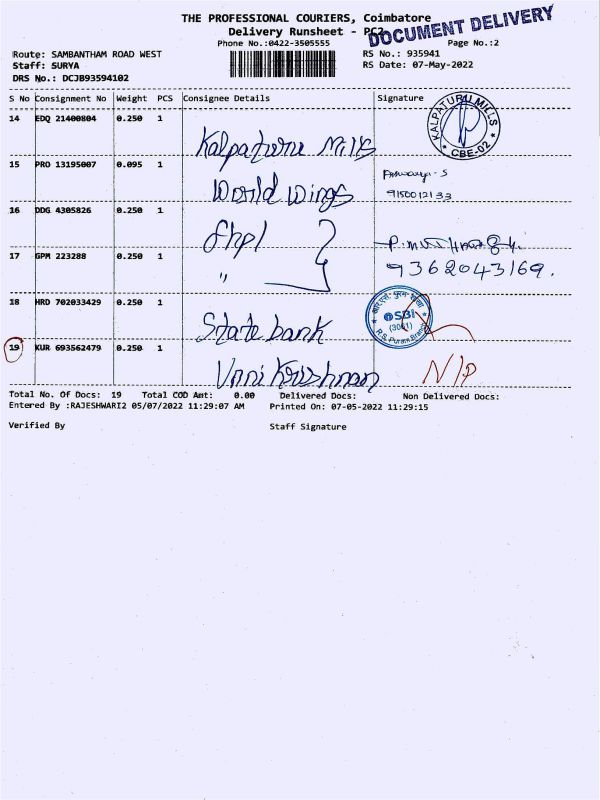 THE PROFESSIONAL COURIERS, Coimbatore
Delivery Runsheet - PC2
DOCUMENT DELIVERY
Phone No.:0422-3505555
Page No.:2
Route: SAMBANTHAM ROAD WEST
RS No.: 935941
Staff: SURYA
RS Date: 07-May-2022
DRS No.: DCJB93594102
S No Consignment No Weight PCS Consignee Details Signature
14 EDQ 21400804 0.250 1 Kalpaturu Mills KALPATURU MILLS CBE-02
15 PRO 13195007 0.095 1 World Wings
9150012133
16 DDG 4305826 0.250 1
17 GPM 223288 0.250 1 "
9362043169.
18 HRD 702033429 0.250 1 State bank SBI (3061)
19 KUR 693562479 0.250 1 Unni Krishnan N/P
Total No. Of Docs: 19 Total COD Amt: 0.00 Delivered Docs: Non Delivered Docs:
Entered By :RAJESHWARI2 05/07/2022 11:29:07 AM Printed On: 07-05-2022 11:29:15
Verified By Staff Signature